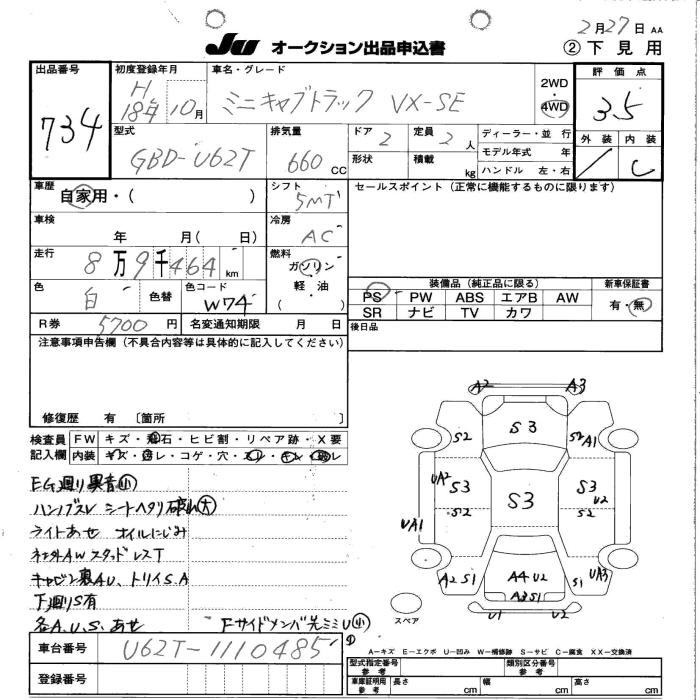 2月27日 AA
JU オークション出品申込書
② 下見用
出品番号 734
初度登録年月 H18年10月
車名・グレード ミニキャブトラック VX-SE
2WD・4WD
評価点 3.5
外装 内装 C
型式 GBD-U62T
排気量 660 CC
ドア 2
形状
定員 2 人
積載 kg
ディーラー・並 行
モデル年式 年
ハンドル 左・右
車歴 自家用・( )
シフト 5MT
セールスポイント(正常に機能するものに限ります)
車検 年 月( 日)
冷房 AC
走行 8万9千464km
燃料 ガソリン・軽油・( )
色 白 色替 色コード W74
装備品(純正品に限る)
新車保証書
PS PW ABS エアB AW
有・無
SR ナビ TV カワ
R券 5700円 名変通知期限 月 日
後日品
注意事項申告欄(不具合内容等は具体的に記入してください)
修復歴 有 〔箇所 〕
検査員記入欄
FW キズ・飛石・ヒビ割・リペア跡・X要
内装
EG廻り異音小
ハンドルスレ シートヘタリ 破れ大
ライトあせ オイルにじみ
社外AW スタッドレスT
キャビン裏AU、トリイS.A
下廻りS有
各A.U.S.あせ
FサイドメンバU小
A2 A3
S2 S3 S2 A1
UA2 S3 S3 S3 U2
S2 S2
UA1
A2 S1 A4 U2 S1 UA3
A3 S1
U1 U2
スペア
車台番号 U62T-1110485
登録番号
A-キズ E-エクボ U-凹み W-補修跡 S-サビ C-腐食 XX-交換済
型式指定番号 参考
類別区分番号 参考
車庫証明用 参考 長さ cm 幅 cm 高さ cm